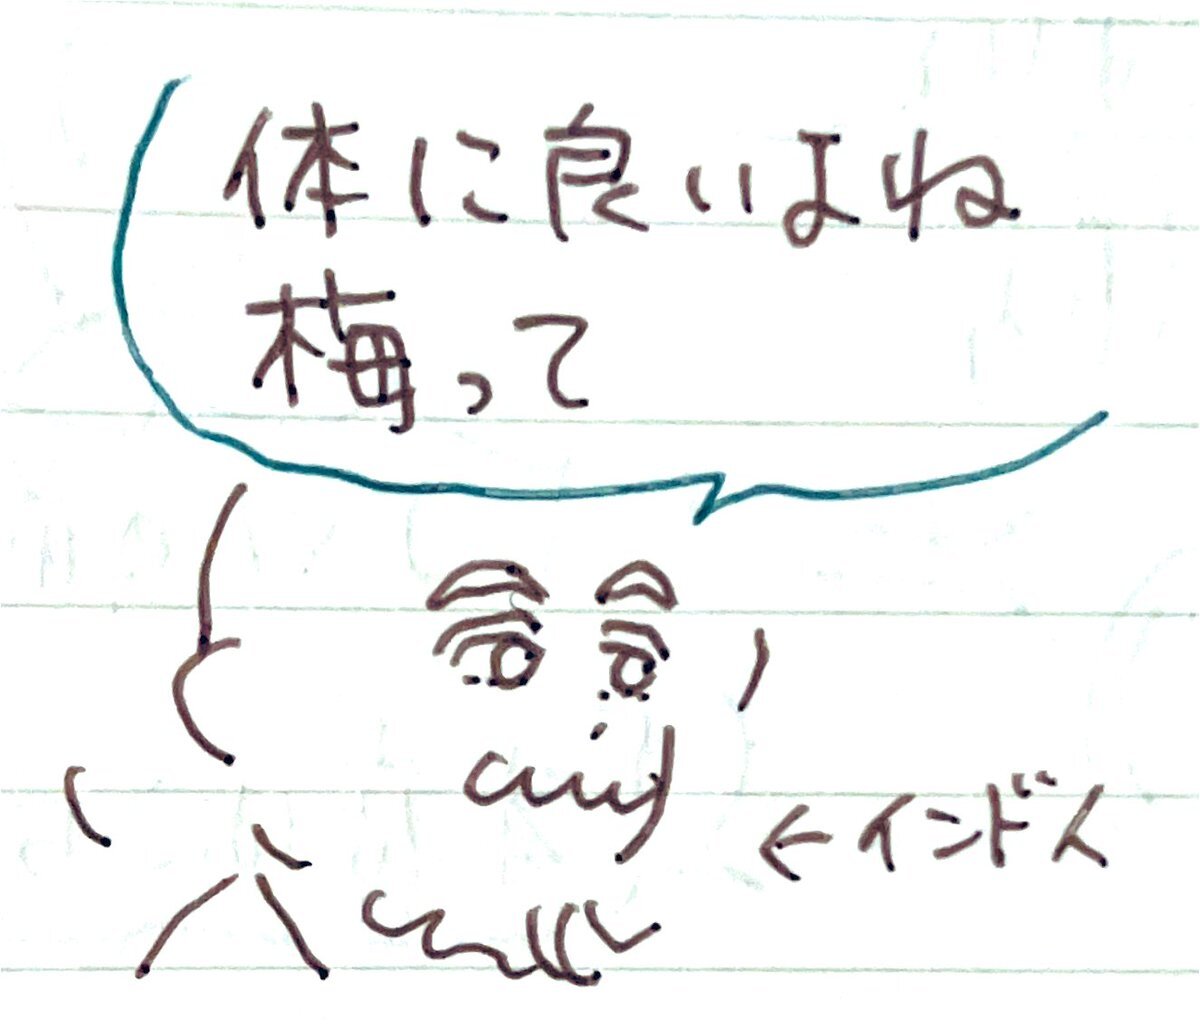 体に良いよね
梅って
←インド人